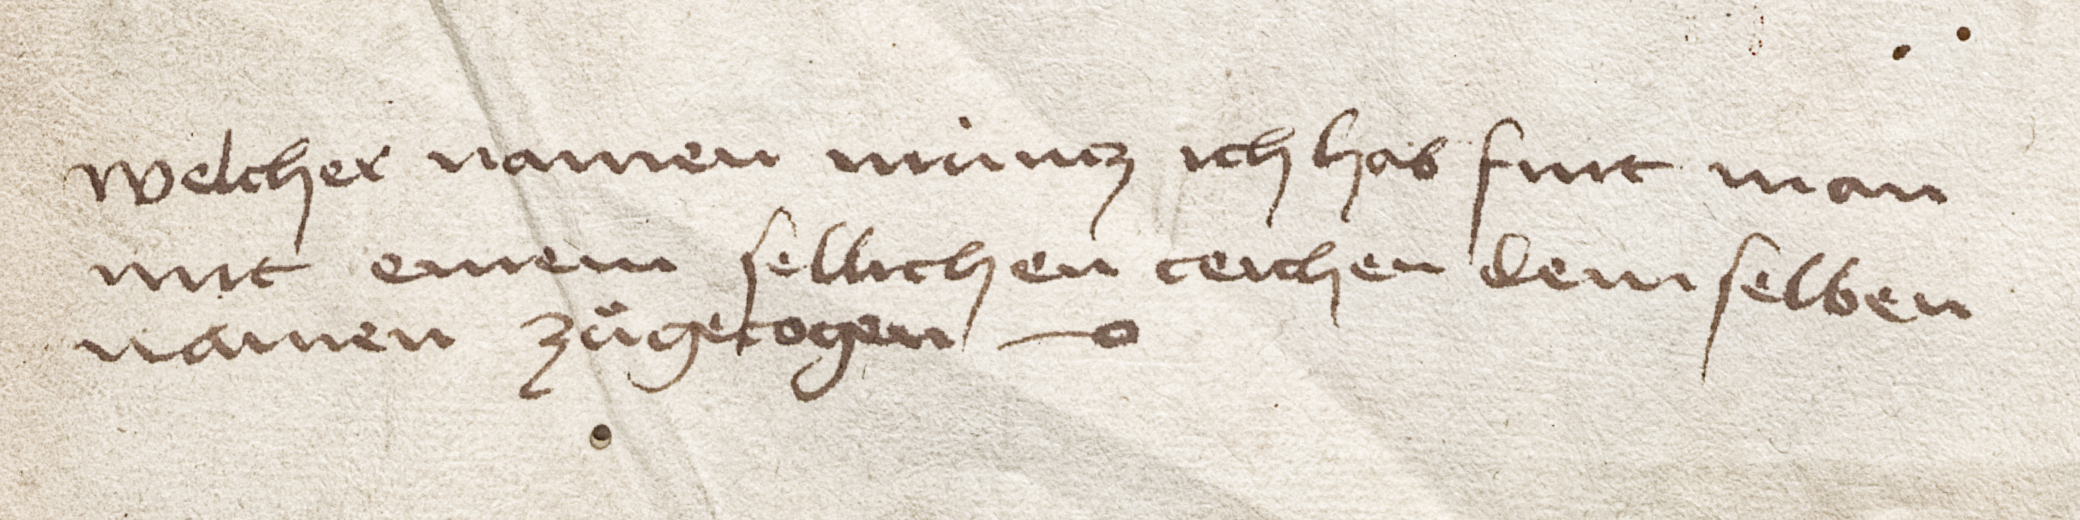 welcher namen müntz ich hab fint man
mit einem sellichen ceichen dem selben
namen zügezogen —o